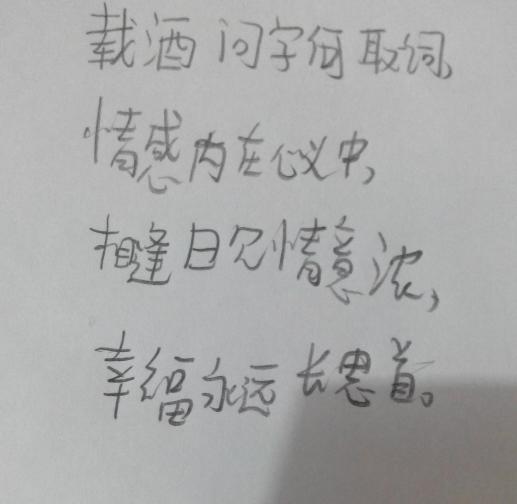 载酒问字何取词,
情感内在心议中,
相逢日久情意浓,
幸福永远长思首。